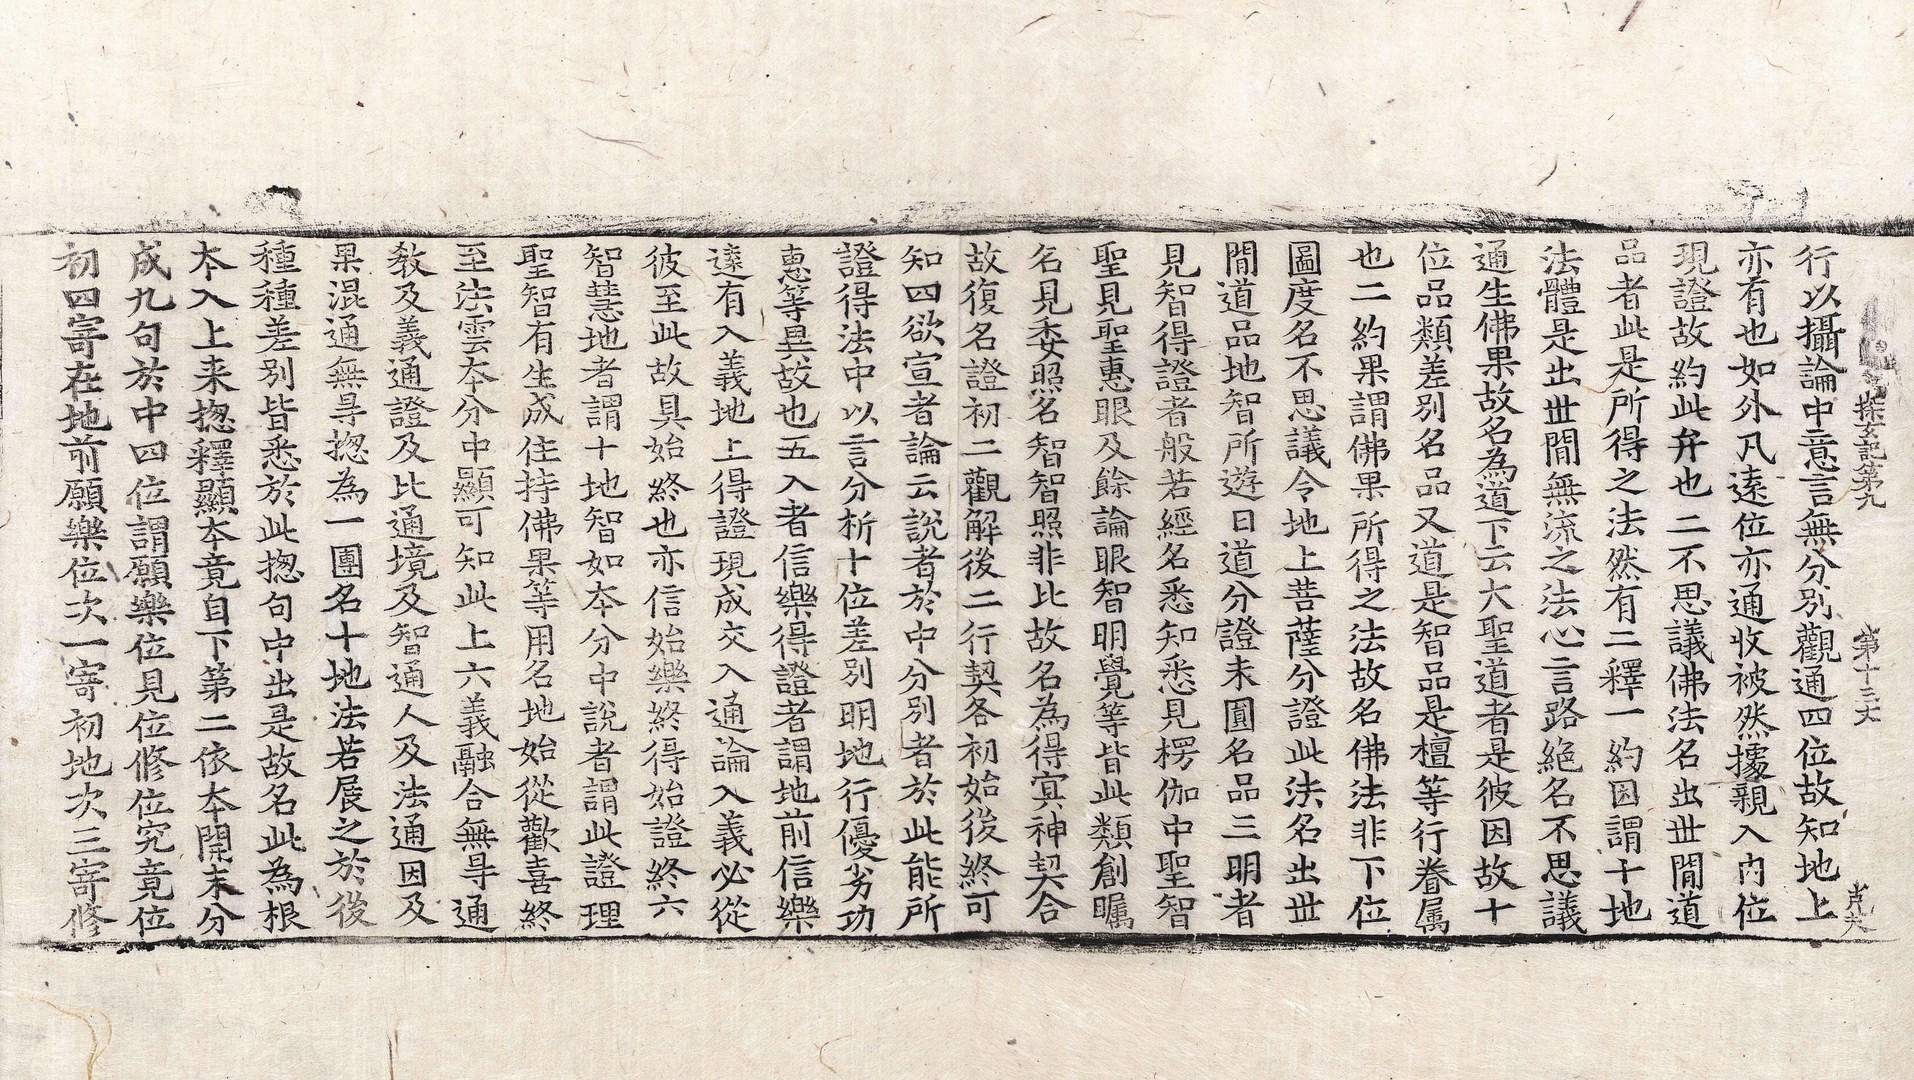 探玄記第九　第十三丈
行以攝論中意言無分別觀通四位故知地上
亦有也如外凡遠位亦通收被然據親入內位
現證故約此弁也二不思議佛法名出世間道
品者此是所得之法然有二釋一約因謂十地
法體是出世間無流之法心言路絕名不思議
通生佛果故名為道下云大聖道者是彼因故十
位品類差別名品又道是智品是檀等行眷属
也二約果謂佛果所得之法故名佛法非下位
圖度名不思議令地上菩薩分證此法名出世
間道品地智所遊曰道分證未圓名品三明者
見智得證者般若經名悉知悉見楞伽中聖智
聖見聖惠眼及餘論眼智明覺等皆此類創矚
名見委照名智智照非比故名為得冥神契合
故復名證初二觀解後二行契各初始後終可
知四欲宣者論云說者於中分別者於此能所
證得法中以言分析十位差別明地行優劣功
惠等異故也五入者信樂得證者謂地前信樂
遠有入義地上得證現成交入通論入義必從
彼至此故具始終也亦信始樂終得始證終六
智慧地者謂十地智如夲分中說者謂此證理
聖智有生成住持佛果等用名地始從歡喜終
至法雲夲分中顯可知此上六義融合無㝵通
教及義通證及比通境及智通人及法通因及
果混通無㝵揔為一團名十地法若展之於後
種種差別皆悉於此揔句中出是故名此為根
夲入上来揔釋顯夲竟自下第二依夲開末分
成九句於中四位謂願樂位見位修位究竟位
初四寄在地前願樂位次一寄初地次三寄修